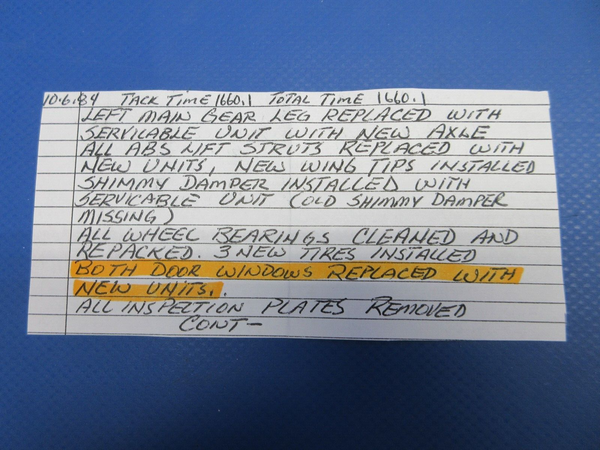 10.6.84 TACK TIME 1660.1 TOTAL TIME 1660.1
LEFT MAIN GEAR LEG REPLACED WITH
SERVICABLE UNIT WITH NEW AXLE
ALL ABS LIFT STRUTS REPLACED WITH
NEW UNITS, NEW WING TIPS INSTALLED
SHIMMY DAMPER INSTALLED WITH
SERVICABLE UNIT (OLD SHIMMY DAMPER
MISSING)
ALL WHEEL BEARINGS CLEANED AND
REPACKED. 3 NEW TIRES INSTALLED
BOTH DOOR WINDOWS REPLACED WITH
NEW UNITS.
ALL INSPECTION PLATES REMOVED
CONT-